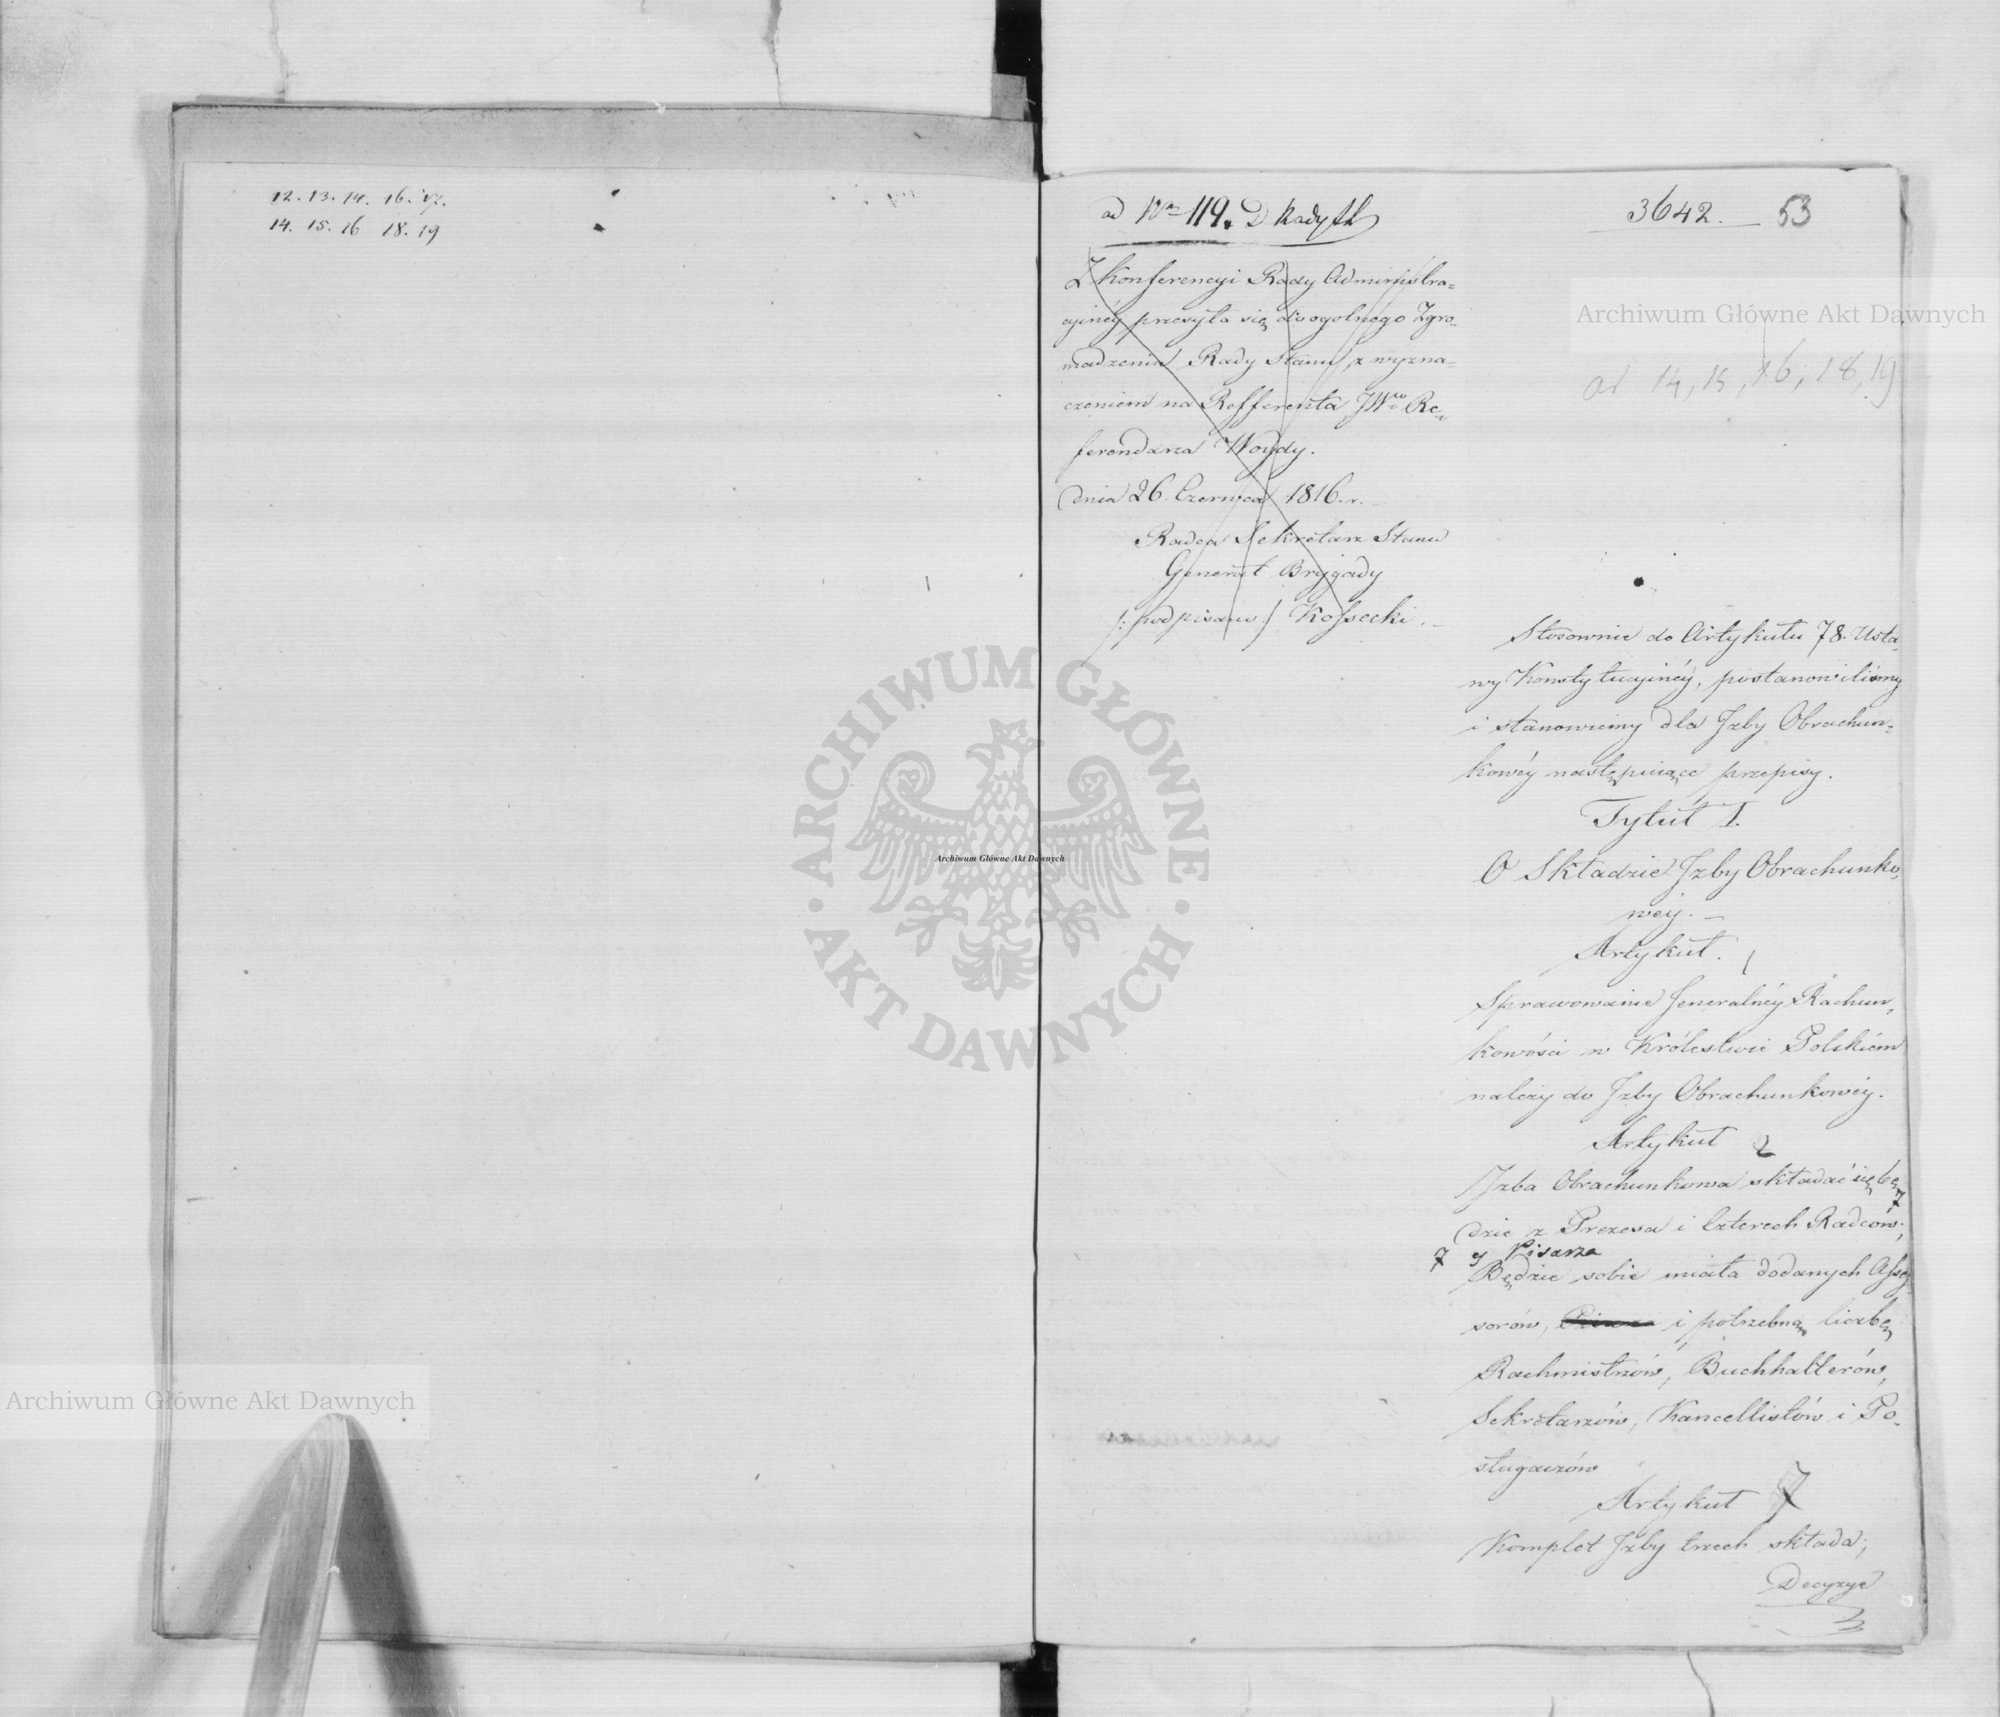 12. 13. 14. 16. 17.
14. 15. 16 18. 19
ad Nro 119. D Rady St
3642. 53
Z Konferencyi Rady Administra=
cyinéy przesyła się do ogolnego Zgro-
madzenia Rady Stanu, z wyzna=
czeniem na Refferenta JWo Re=
ferendarza Woydy.
dnia 26. Czerwca 1816. r.
Radca Sekretarz Stanu
Generał Brygady
/: podpisano :/ Kossecki.
ad 14, 15, 16, 18, 19
Stosownie do Artykułu 78. Usta-
wy Konstytucyinéy, postanowiliśmy
i stanowiemy dla Jzby Obrachun=
kowéy następuiące przepisy.
Tytuł I.
O Składzie Jzby Obrachunko-
wéy.
Artykuł. 1
Sprawowanie Jeneralnéy Rachun-
kowości w Królestwie Polskiém
należy do Jzby Obrachunkowéy.
Artykuł 2
Jzba Obrachunkowa składać się bę-
dzie z Prezesa i Czterech Radców;
y Pisarza
Będzie sobie miała dodanych Asses-
sorów, i potrzebną liczbę
Rachmistrzów, Buchhalterów,
Sekretarzów, Kancellistów i Po-
sługaczów
Artykuł
Komplet Jzby trzech składa;
Decyzye
Archiwum Główne Akt Dawnych
Archiwum Główne Akt Dawnych
Archiwum Główne Akt Dawnych
ARCHIWUM GŁÓWNE
AKT DAWNYCH